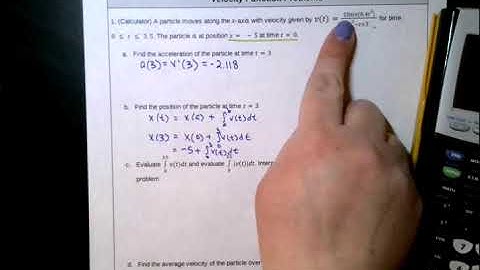 Velocity Function Problems
1. (Calculator) A particle moves along the x-axis with velocity given by v(t) = for time
0 ≤ t ≤ 3.5. The particle is at position x = -5 at time t = 0.
a. Find the acceleration of the particle at time t = 3
a(3) = v'(3) = -2.118
b. Find the position of the particle at time t = 3
x(t) = x(0) + ∫ v(t)dt
x(3) = x(0) + ∫ v(t)dt
= -5 + ∫ v(t)dt
c. Evaluate ∫ v(t)dt and evaluate ∫ |v(t)|dt.
problem
d. Find the average velocity of the particle over